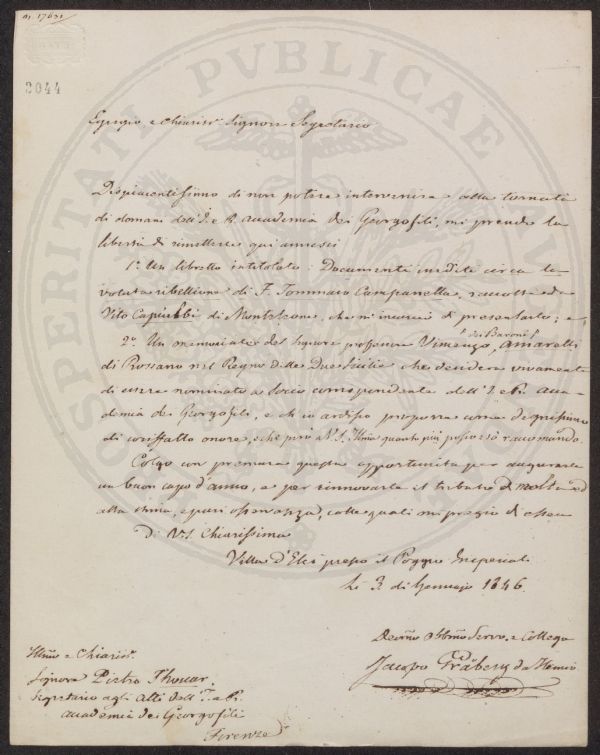 2044
PROSPERITATI PUBLICAE
Egregio, e Chiariss.º Signore Segretario
Dispiacentissimo di non potere intervenire alla tornata
di domani dell'I. e R. Accademia dei Georgofili, mi prendo la
libertà di rimettere qui annessi
1.º Un libretto intitolato: Documenti inediti circa la
voluta ribellione di F. Tommaso Campanella, raccolti da
Vito Capialbi di Monteleone, che m'incaricò di presentarlo; e
2.º Un memoriale del Signore professore Vincenzo, Amarelli
dei Baroni
di Rossano nel Regno delle Due Sicilie che desidera vivamente
di essere nominato a Socio corrispondente dell'I. e R. Acca-
demia dei Georgofili, e ch'io ardisco proporre come degnissimo
di cosiffatto onore, e che però a V. S. Illma quanto più posso so raccomando.
Colgo con premura questa opportunità per augurarle
un buon capo d'anno, e per rinnovarle il tributo di molta ed
alta stima, e pari osservanza, colle quali mi pregio di essere
Di V. S. Chiarissima
Villa d'Elci presso il Poggio Imperiale
li 3 di Gennajo 1846.
Devmo Obbmo Servo. e Collega
Jacopo Gråberg da Hemsö
Illmo e Chiariss.º
Signore Pietro Thouar.
Segretario agli Atti dell'I. e R.
Accademia dei Georgofili
Firenze